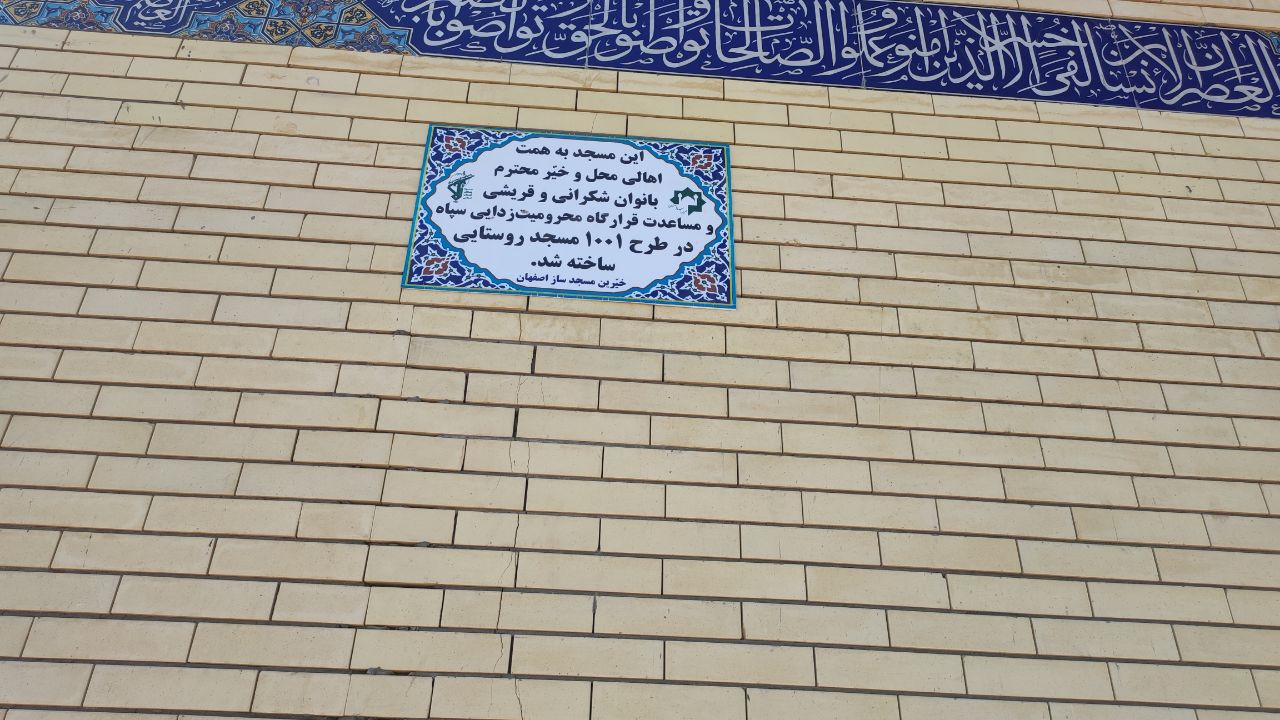 العصر ان الانسان لفی خسر الا الذین امنو وعملوا الصالحات وتواصوا بالحق وتواصوا
این مسجد به همت
اهالی محل و خیّر محترم
بانوان شکرانی و قریشی
و مساعدت قرارگاه محرومیت‌زدایی سپاه
در طرح ۱۰۰۱ مسجد روستایی
ساخته شد.
خیّرین مسجد ساز اصفهان